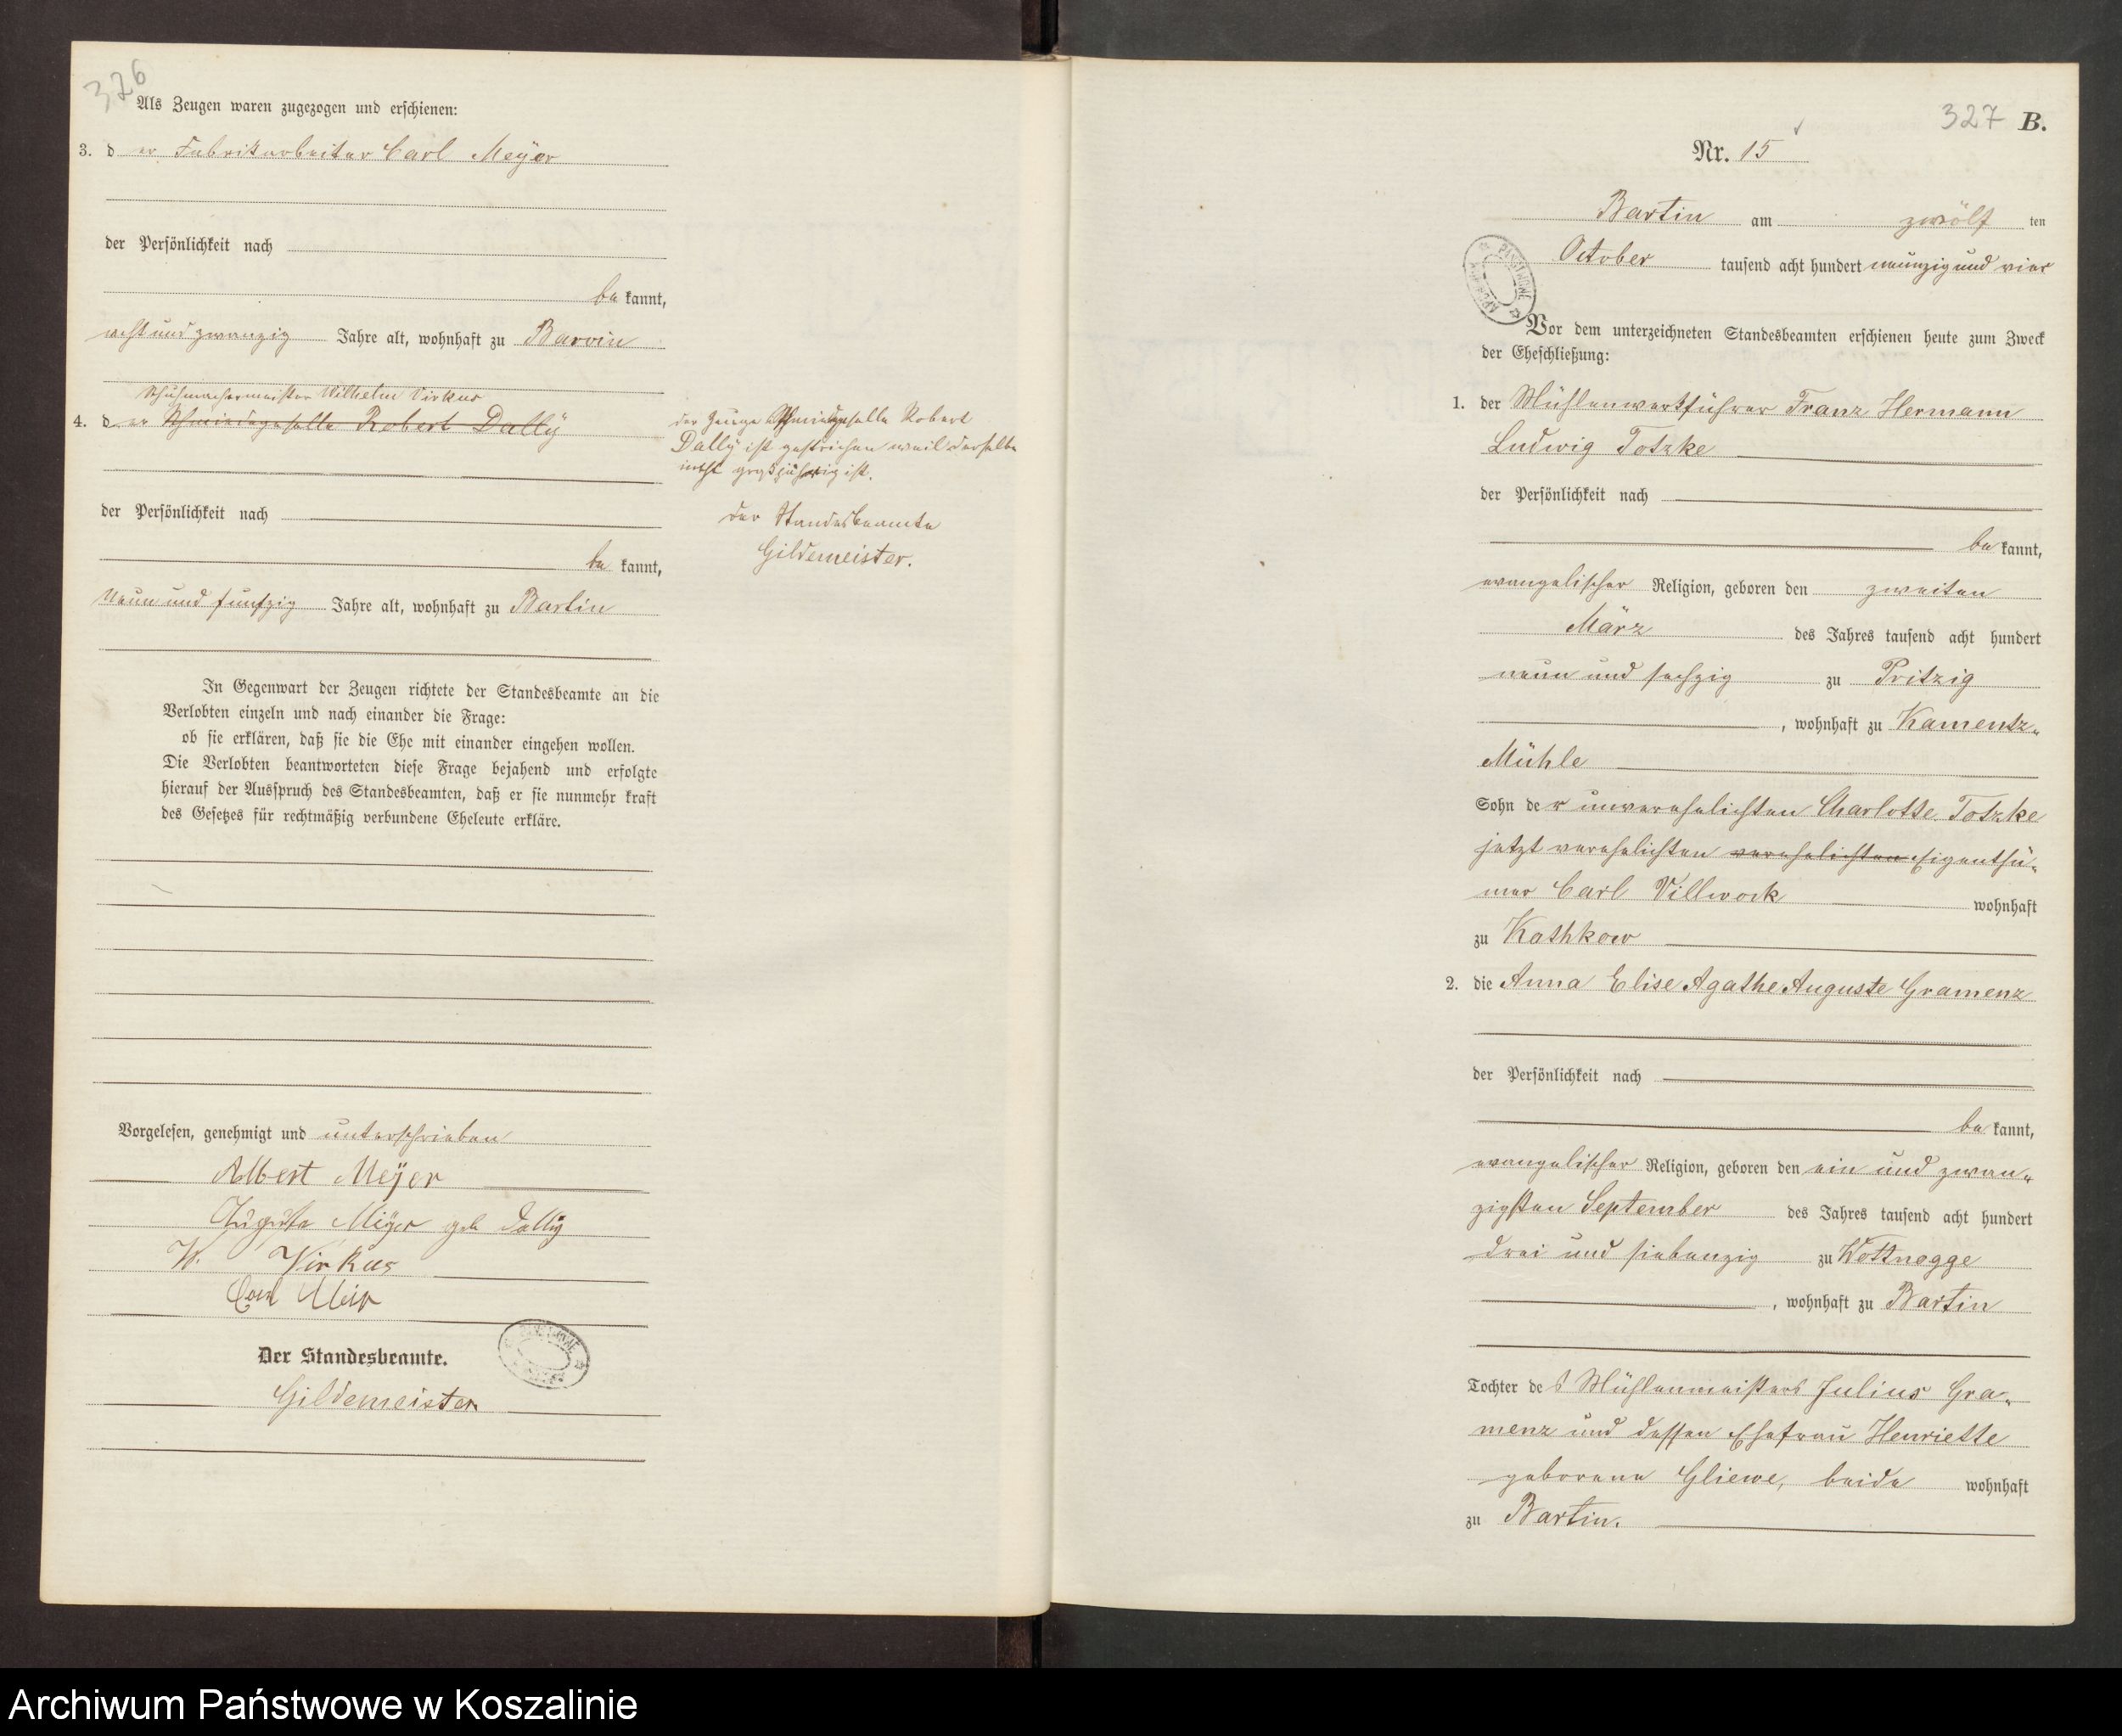 376
Als Zeugen waren zugezogen und erschienen:
3. der Fabrikarbeiter Carl Meÿer
der Persönlichkeit nach
bekannt,
acht und zwanzig Jahre alt, wohnhaft zu Barvin
Schuhmachermeister Wilhelm Virkus
4. der Schmiedegeselle Robert Dallÿ
der Persönlichkeit nach
bekannt,
neun und funfzig Jahre alt, wohnhaft zu Bartin
der Zeuge Schmiedgeselle Robert
Dallÿ ist gestrichen weil derselbe
nicht großjährig ist.
der Standesbeamte
Gildemeister.
In Gegenwart der Zeugen richtete der Standesbeamte an die
Verlobten einzeln und nach einander die Frage:
ob sie erklären, daß sie die Ehe mit einander eingehen wollen.
Die Verlobten beantworteten diese Frage bejahend und erfolgte
hierauf der Ausspruch des Standesbeamten, daß er sie nunmehr kraft
des Gesetzes für rechtmäßig verbundene Eheleute erkläre.
Vorgelesen, genehmigt und unterschrieben
Albert Meÿer
Auguste Meÿer geb Dallÿ
W. Virkus
Carl
Der Standesbeamte.
Gildemeister
327 B.
Nr. 15
Bartin am zwölf ten
October tausend acht hundert neunzig und vier
Vor dem unterzeichneten Standesbeamten erschienen heute zum Zweck
der Eheschließung:
1. der Mühlenwerkführer Franz Hermann
Ludwig Totzke
der Persönlichkeit nach
bekannt,
evangelischer Religion, geboren den zweiten
März des Jahres tausend acht hundert
neun und sechzig zu Pritzig
, wohnhaft zu Kamentz-
Mühle
Sohn der unverehelichten Charlotte Totzke
jetzt verehelichten verehelichten Eigenthü-
mer Carl Villwock wohnhaft
zu Kathkow
2. die Anna Elise Agathe Auguste Gramenz
der Persönlichkeit nach
bekannt,
evangelischer Religion, geboren den ein und zwan-
zigsten September des Jahres tausend acht hundert
drei und siebenzig zu Wottnogge
, wohnhaft zu Bartin
Tochter des Mühlenmeisters Julius Gra-
menz und dessen Ehefrau Henriette
geborene Gliewe, beide wohnhaft
zu Bartin.
Archiwum Państwowe w Koszalinie